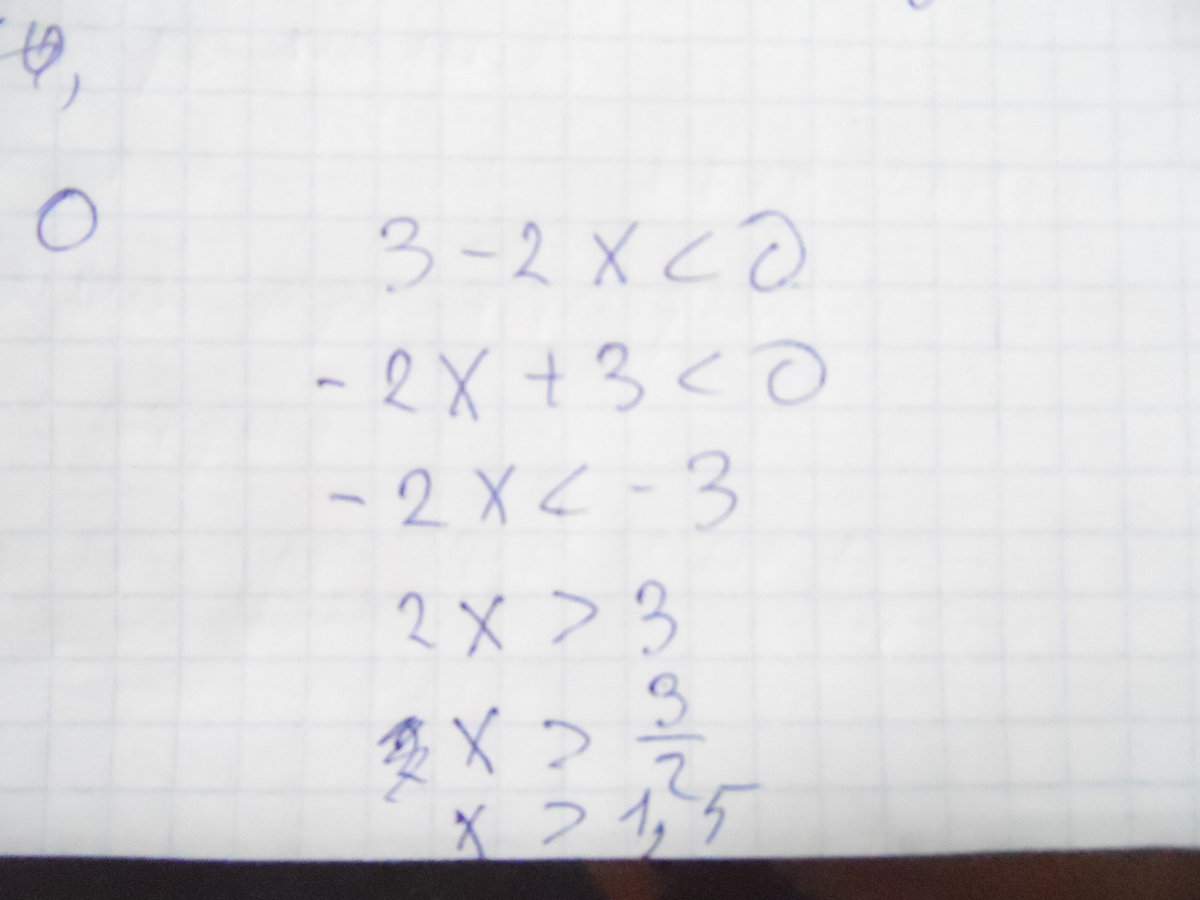 0
3 - 2x < 0
- 2x + 3 < 0
- 2x < - 3
2x > 3
x > 3/2
x > 1,5